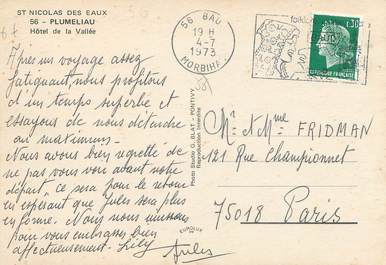 ST NICOLAS DES EAUX
56 - PLUMELIAU
Hôtel de la Vallée
Après un voyage assez
fatiguant, nous profitons
d'un temps superbe et
essayons de nous détendre
au maximum.
Nous avons bien regretté de
ne pas vous voir avant notre
départ, ce sera pour le retour
en espérant que Jules sera plus
en forme. Nous nous unissons
pour vous embrasser bien
affectueusement - Lily
Jules
56 BAU
19 H
4-7
1973
MORBIHAN
folklor
0.30
REPUBLIQUE FRANÇAISE
Photo Studio G. BLAT - PONTIVY
Reproduction Interdite
EUROLUX
Mr et Mme FRIDMAN
121 Rue Championnet
75018 Paris